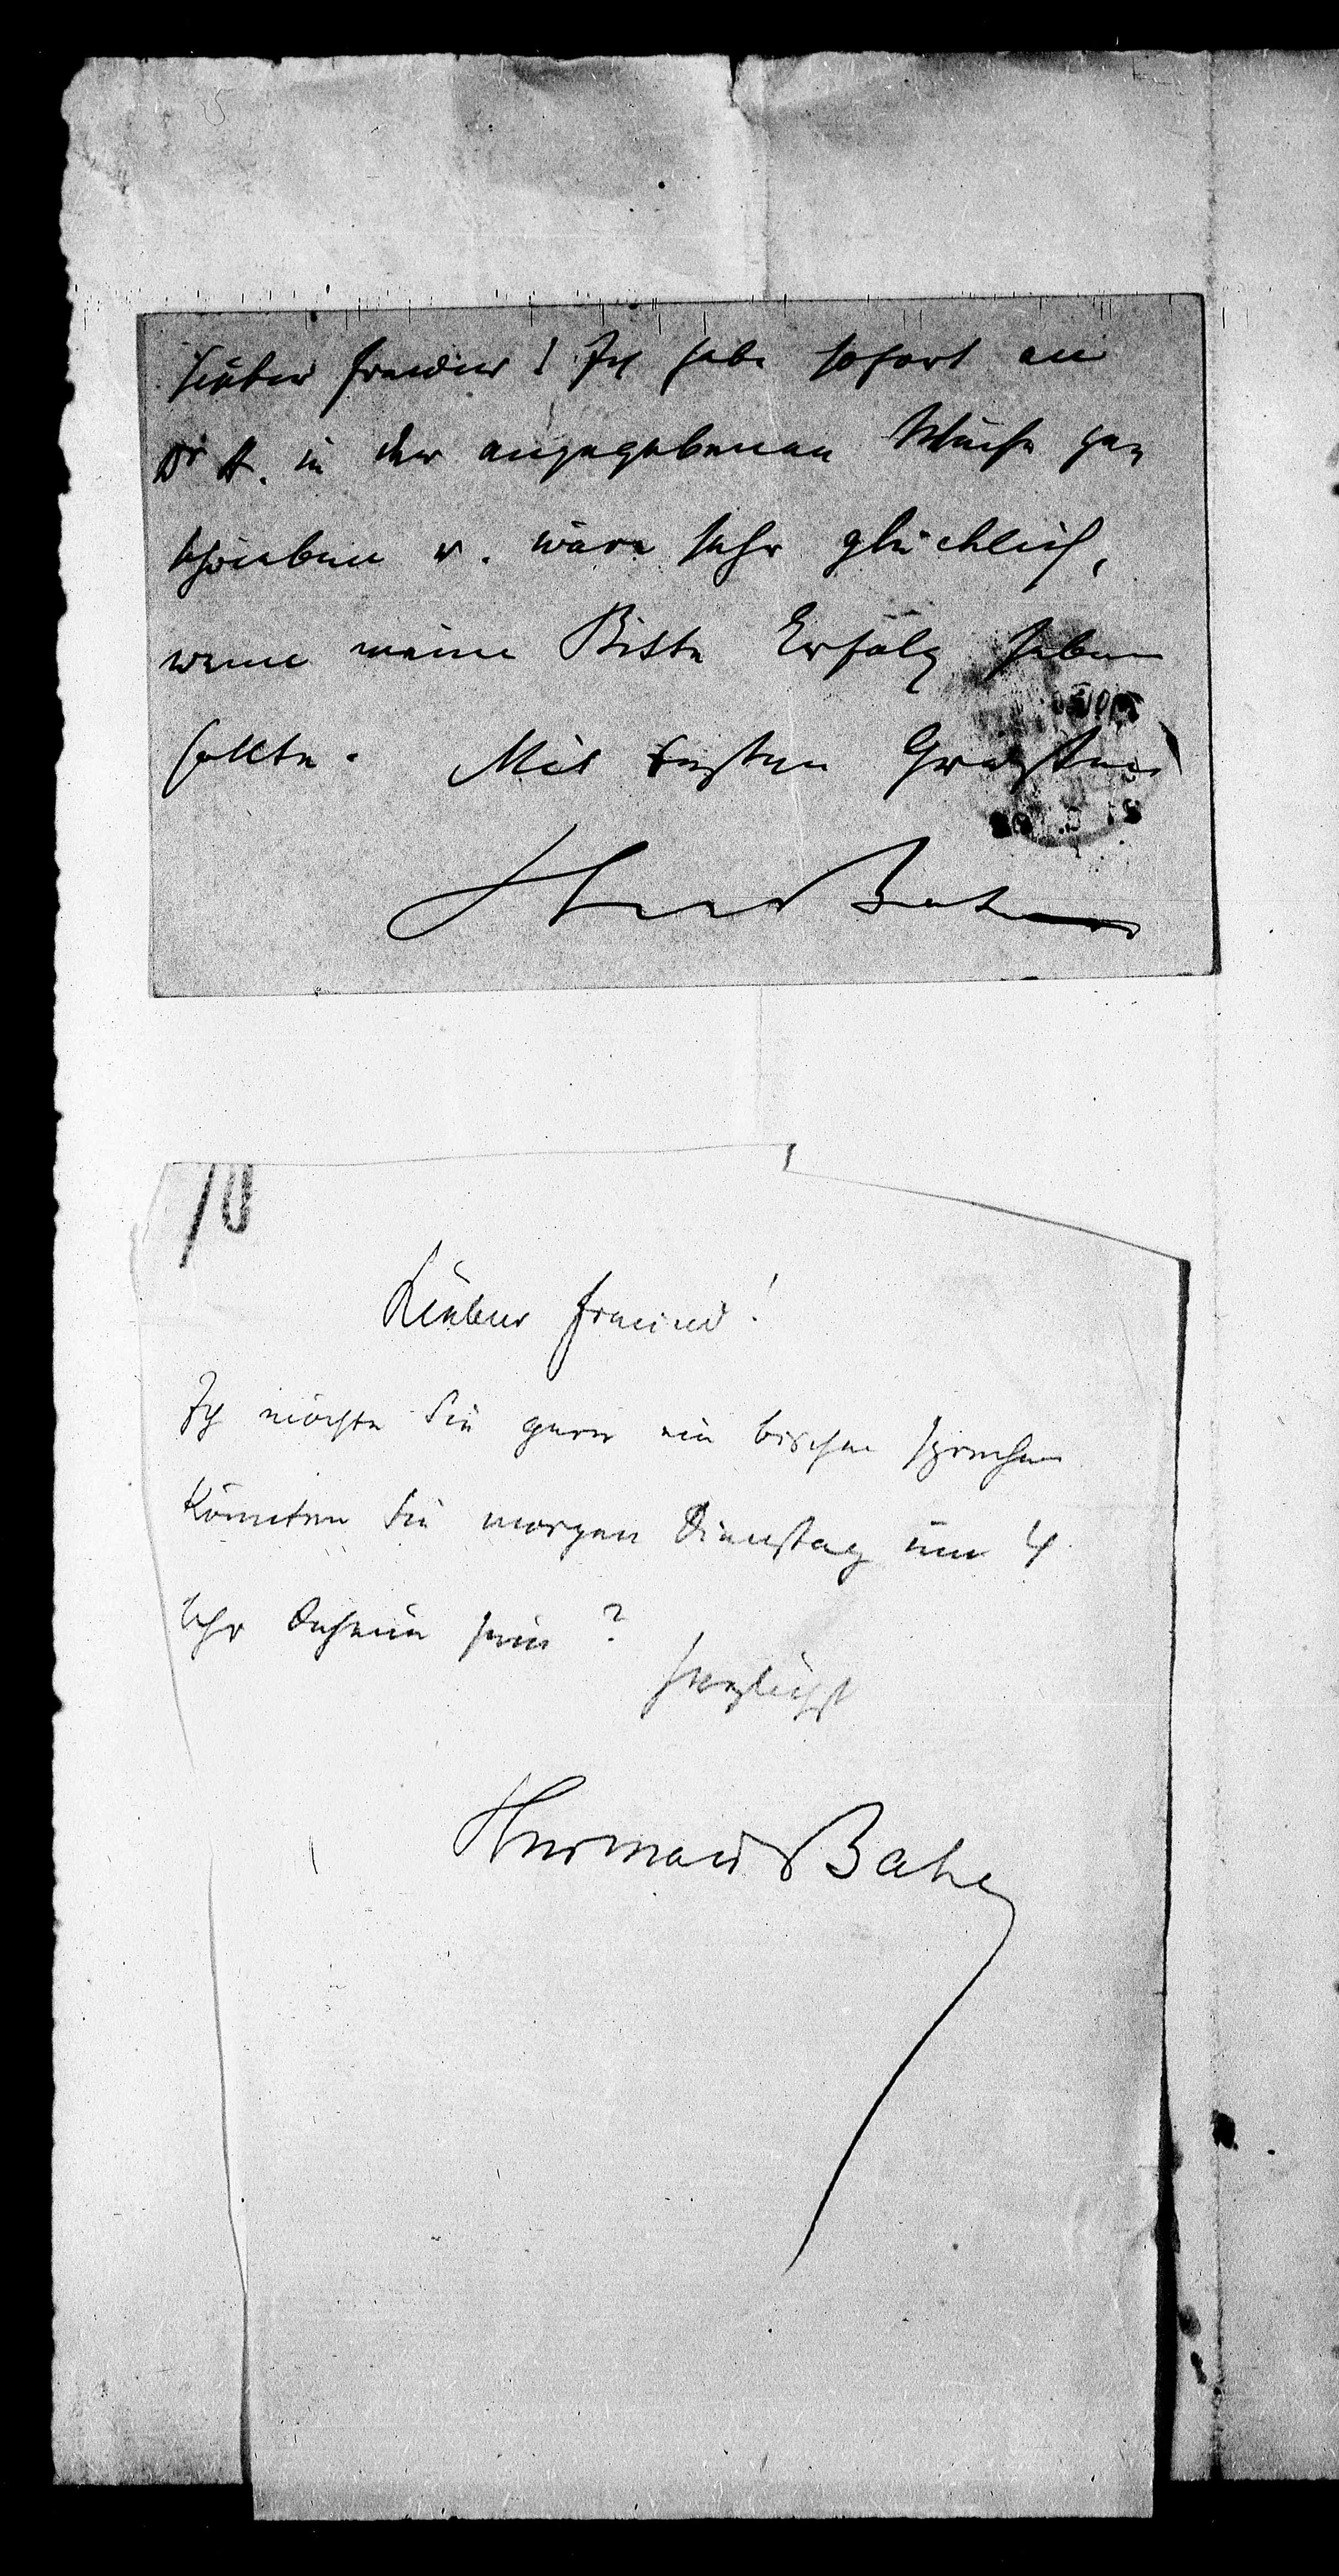 Lieber Freund! Ich habe sofort an
Dr A. in der angegebenen Weise ge-
schrieben u. wäre sehr glücklich,
wenn meine Bitte Erfolg haben
sollte. Mit besten Grüßen
HermBahr
10
Lieber Freund!
Ich möchte Sie gern ein bischen sprechen
Könnten Sie morgen Dienstag um 4
Uhr daheim sein?
Herzlichst
Hermann Bahr